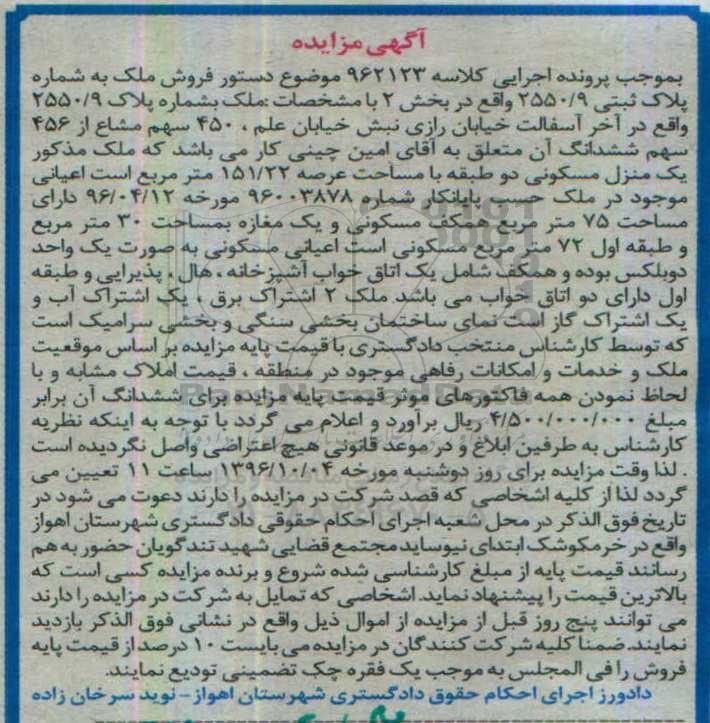 آگهی مزایده
بموجب پرونده اجرایی کلاسه ۹۶۲۱۲۳ موضوع دستور فروش ملک به شماره
پلاک ثبتی ۲۵۵۰/۹ واقع در بخش ۲ با مشخصات :ملک بشماره پلاک ۲۵۵۰/۹
واقع در آخر آسفالت خیابان رازی نبش خیابان علم ، ۴۵۰ سهم مشاع از ۴۵۶
سهم ششدانگ آن متعلق به آقای امین چینی کار می باشد که ملک مذکور
یک منزل مسکونی دو طبقه با مساحت عرصه ۱۵۱/۲۲ متر مربع است اعیانی
موجود در ملک حسب پایانکار شماره ۹۶۰۰۳۸۷۸ مورخه ۹۶/۰۴/۱۲ دارای
مساحت ۷۵ متر مربع همکف مسکونی و یک مغازه بمساحت ۳۰ متر مربع
و طبقه اول ۷۲ متر مربع مسکونی است اعیانی مسکونی به صورت یک واحد
دوبلکس بوده و همکف شامل یک اتاق خواب آشپزخانه ، هال ، پذیرایی و طبقه
اول دارای دو اتاق خواب می باشد ملک ۲ اشتراک برق ، یک اشتراک آب و
یک اشتراک گاز است نمای ساختمان بخشی سنگی و بخشی سرامیک است
که توسط کارشناس منتخب دادگستری با قیمت پایه مزایده بر اساس موقعیت
ملک و خدمات و امکانات رفاهی موجود در منطقه ، قیمت املاک مشابه و با
لحاظ نمودن همه فاکتورهای موثر قیمت پایه مزایده برای ششدانگ آن برابر
مبلغ ۴/۵۰۰/۰۰۰/۰۰۰ ریال برآورد و اعلام می گردد با توجه به اینکه نظریه
کارشناس به طرفین ابلاغ و در موعد قانونی هیچ اعتراضی واصل نگردیده است
. لذا وقت مزایده برای روز دوشنبه مورخه ۱۳۹۶/۱۰/۰۴ ساعت ۱۱ تعیین می
گردد لذا از کلیه اشخاصی که قصد شرکت در مزایده را دارند دعوت می شود در
تاریخ فوق الذکر در محل شعبه اجرای احکام حقوقی دادگستری شهرستان اهواز
واقع در خرمکوشک ابتدای نیوساید مجتمع قضایی شهید تندگویان حضور به هم
رسانند قیمت پایه از مبلغ کارشناسی شده شروع و برنده مزایده کسی است که
بالاترین قیمت را پیشنهاد نماید. اشخاصی که تمایل به شرکت در مزایده را دارند
می توانند پنج روز قبل از مزایده از اموال ذیل واقع در نشانی فوق الذکر بازدید
نمایند. ضمنا کلیه شرکت کنندگان در مزایده می بایست ۱۰ درصد از قیمت پایه
فروش را فی المجلس به موجب یک فقره چک تضمینی تودیع نمایند.
دادورز اجرای احکام حقوق دادگستری شهرستان اهواز - نوید سرخان زاده